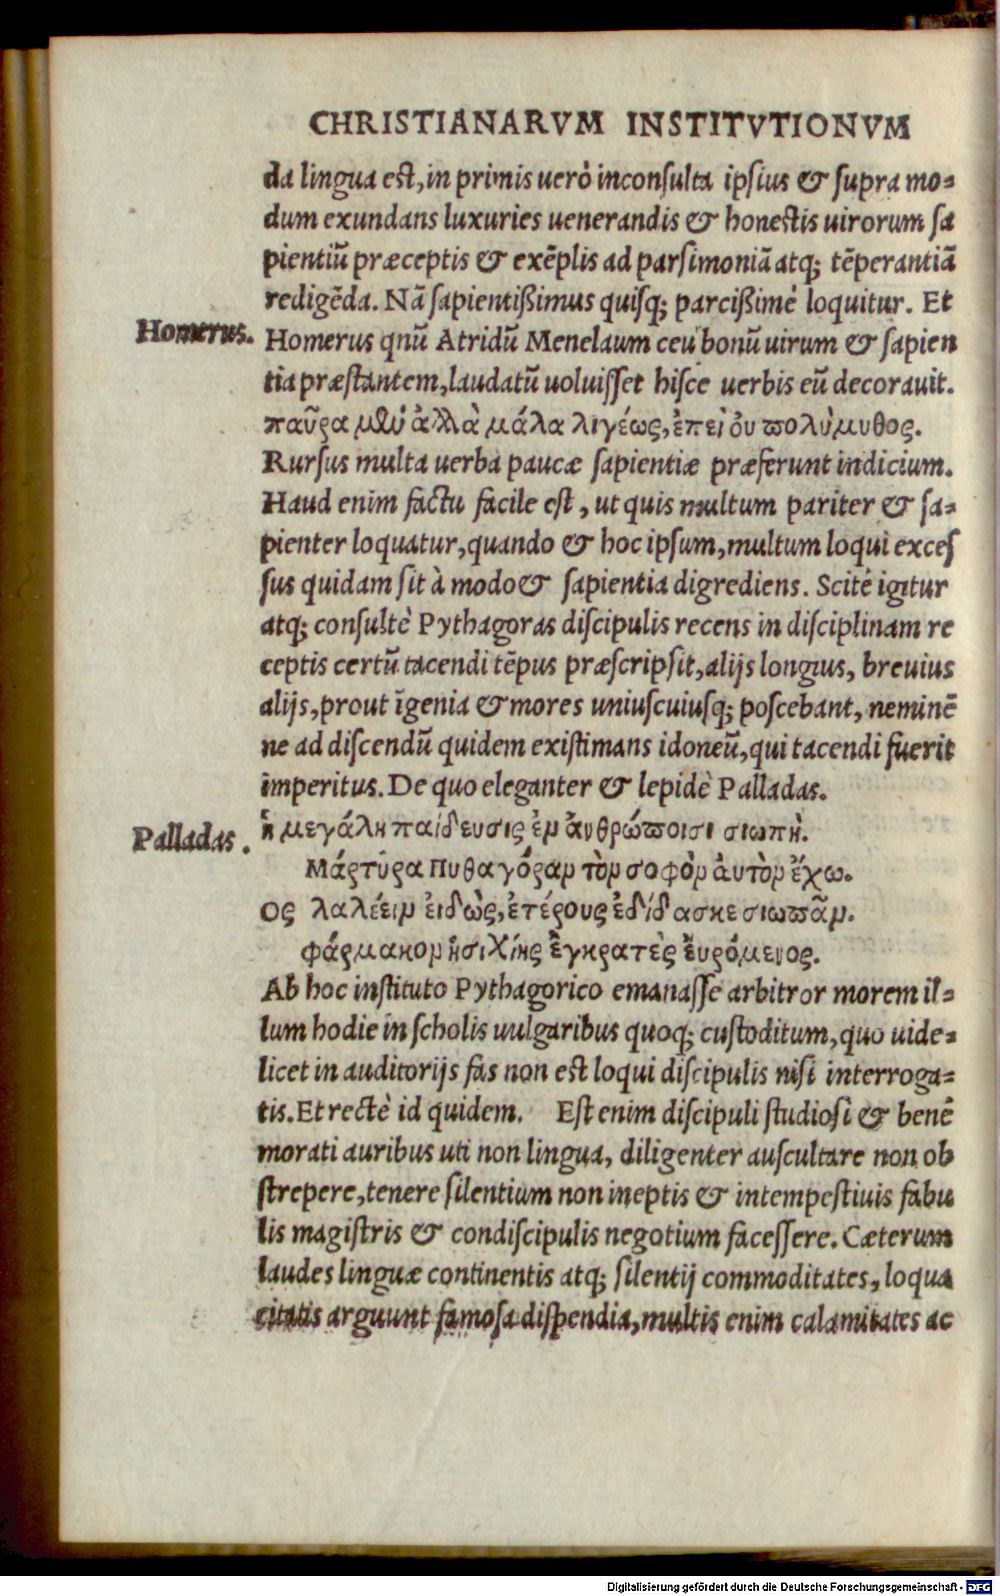 CHRISTIANARVM INSTITVTIONVM
da lingua est, in primis uerò inconsulta ipsius & supra mo-
dum exundans luxuries uenerandis & honestis uirorum sa
pientiũ præceptis & exẽplis ad parsimoniã atq; tẽperantiã
redigẽda. Nã sapientißimus quisq; parcißimè loquitur. Et
Homerus.
Homerus qnũ Atridũ Menelaum ceu bonũ uirum & sapien
tia præstantem, laudatũ uoluisset hisce uerbis eũ decorauit.
παῦρα μὲν ἀλλὰ μάλα λιγέως, ἐπεὶ ὀυ πολύμυθος.
Rursus multa uerba paucæ sapientiæ præferunt indicium.
Haud enim factu facile est, ut quis multum pariter & sa-
pienter loquatur, quando & hoc ipsum, multum loqui exces
sus quidam sit à modo & sapientia digrediens. Scitè igitur
atq; consultè Pythagoras discipulis recens in disciplinam re
ceptis certũ tacendi tẽpus præscripsit, alijs longius, breuius
alijs, prout ĩgenia & mores uniuscuiusq; poscebant, neminẽ
ne ad discendũ quidem existimans idoneũ, qui tacendi fuerit
imperitus. De quo eleganter & lepidè Palladas.
Palladas.
ἡ μεγάλη παίδευσις ἐν ἀνθρώποισι σιωπὴ.
Μάρτυρα Πυθαγόραν τὸν σοφὸν ἀυτὸν ἔχω.
Ος λαλέειν ἐιδὼς, ἑτέρους ἐδίδασκε σιωπᾶν.
φάρμακον ἡσιχίης ἐγκρατὲς ἑυρόμενος.
Ab hoc instituto Pythagorico emanasse arbitror morem il-
lum hodie in scholis uulgaribus quoq; custoditum, quo uide-
licet in auditorijs fas non est loqui discipulis nisi interroga-
tis. Et rectè id quidem. Est enim discipuli studiosi & benè
morati auribus uti non lingua, diligenter auscultare non ob
strepere, tenere silentium non ineptis & intempestiuis fabu
lis magistris & condiscipulis negotium facessere. Cæterum
laudes linguæ continentis atq; silentij commoditates, loqua
citatis arguunt famosa dispendia, multis enim calamitates ac
Digitalisierung gefördert durch die Deutsche Forschungsgemeinschaft - DFG